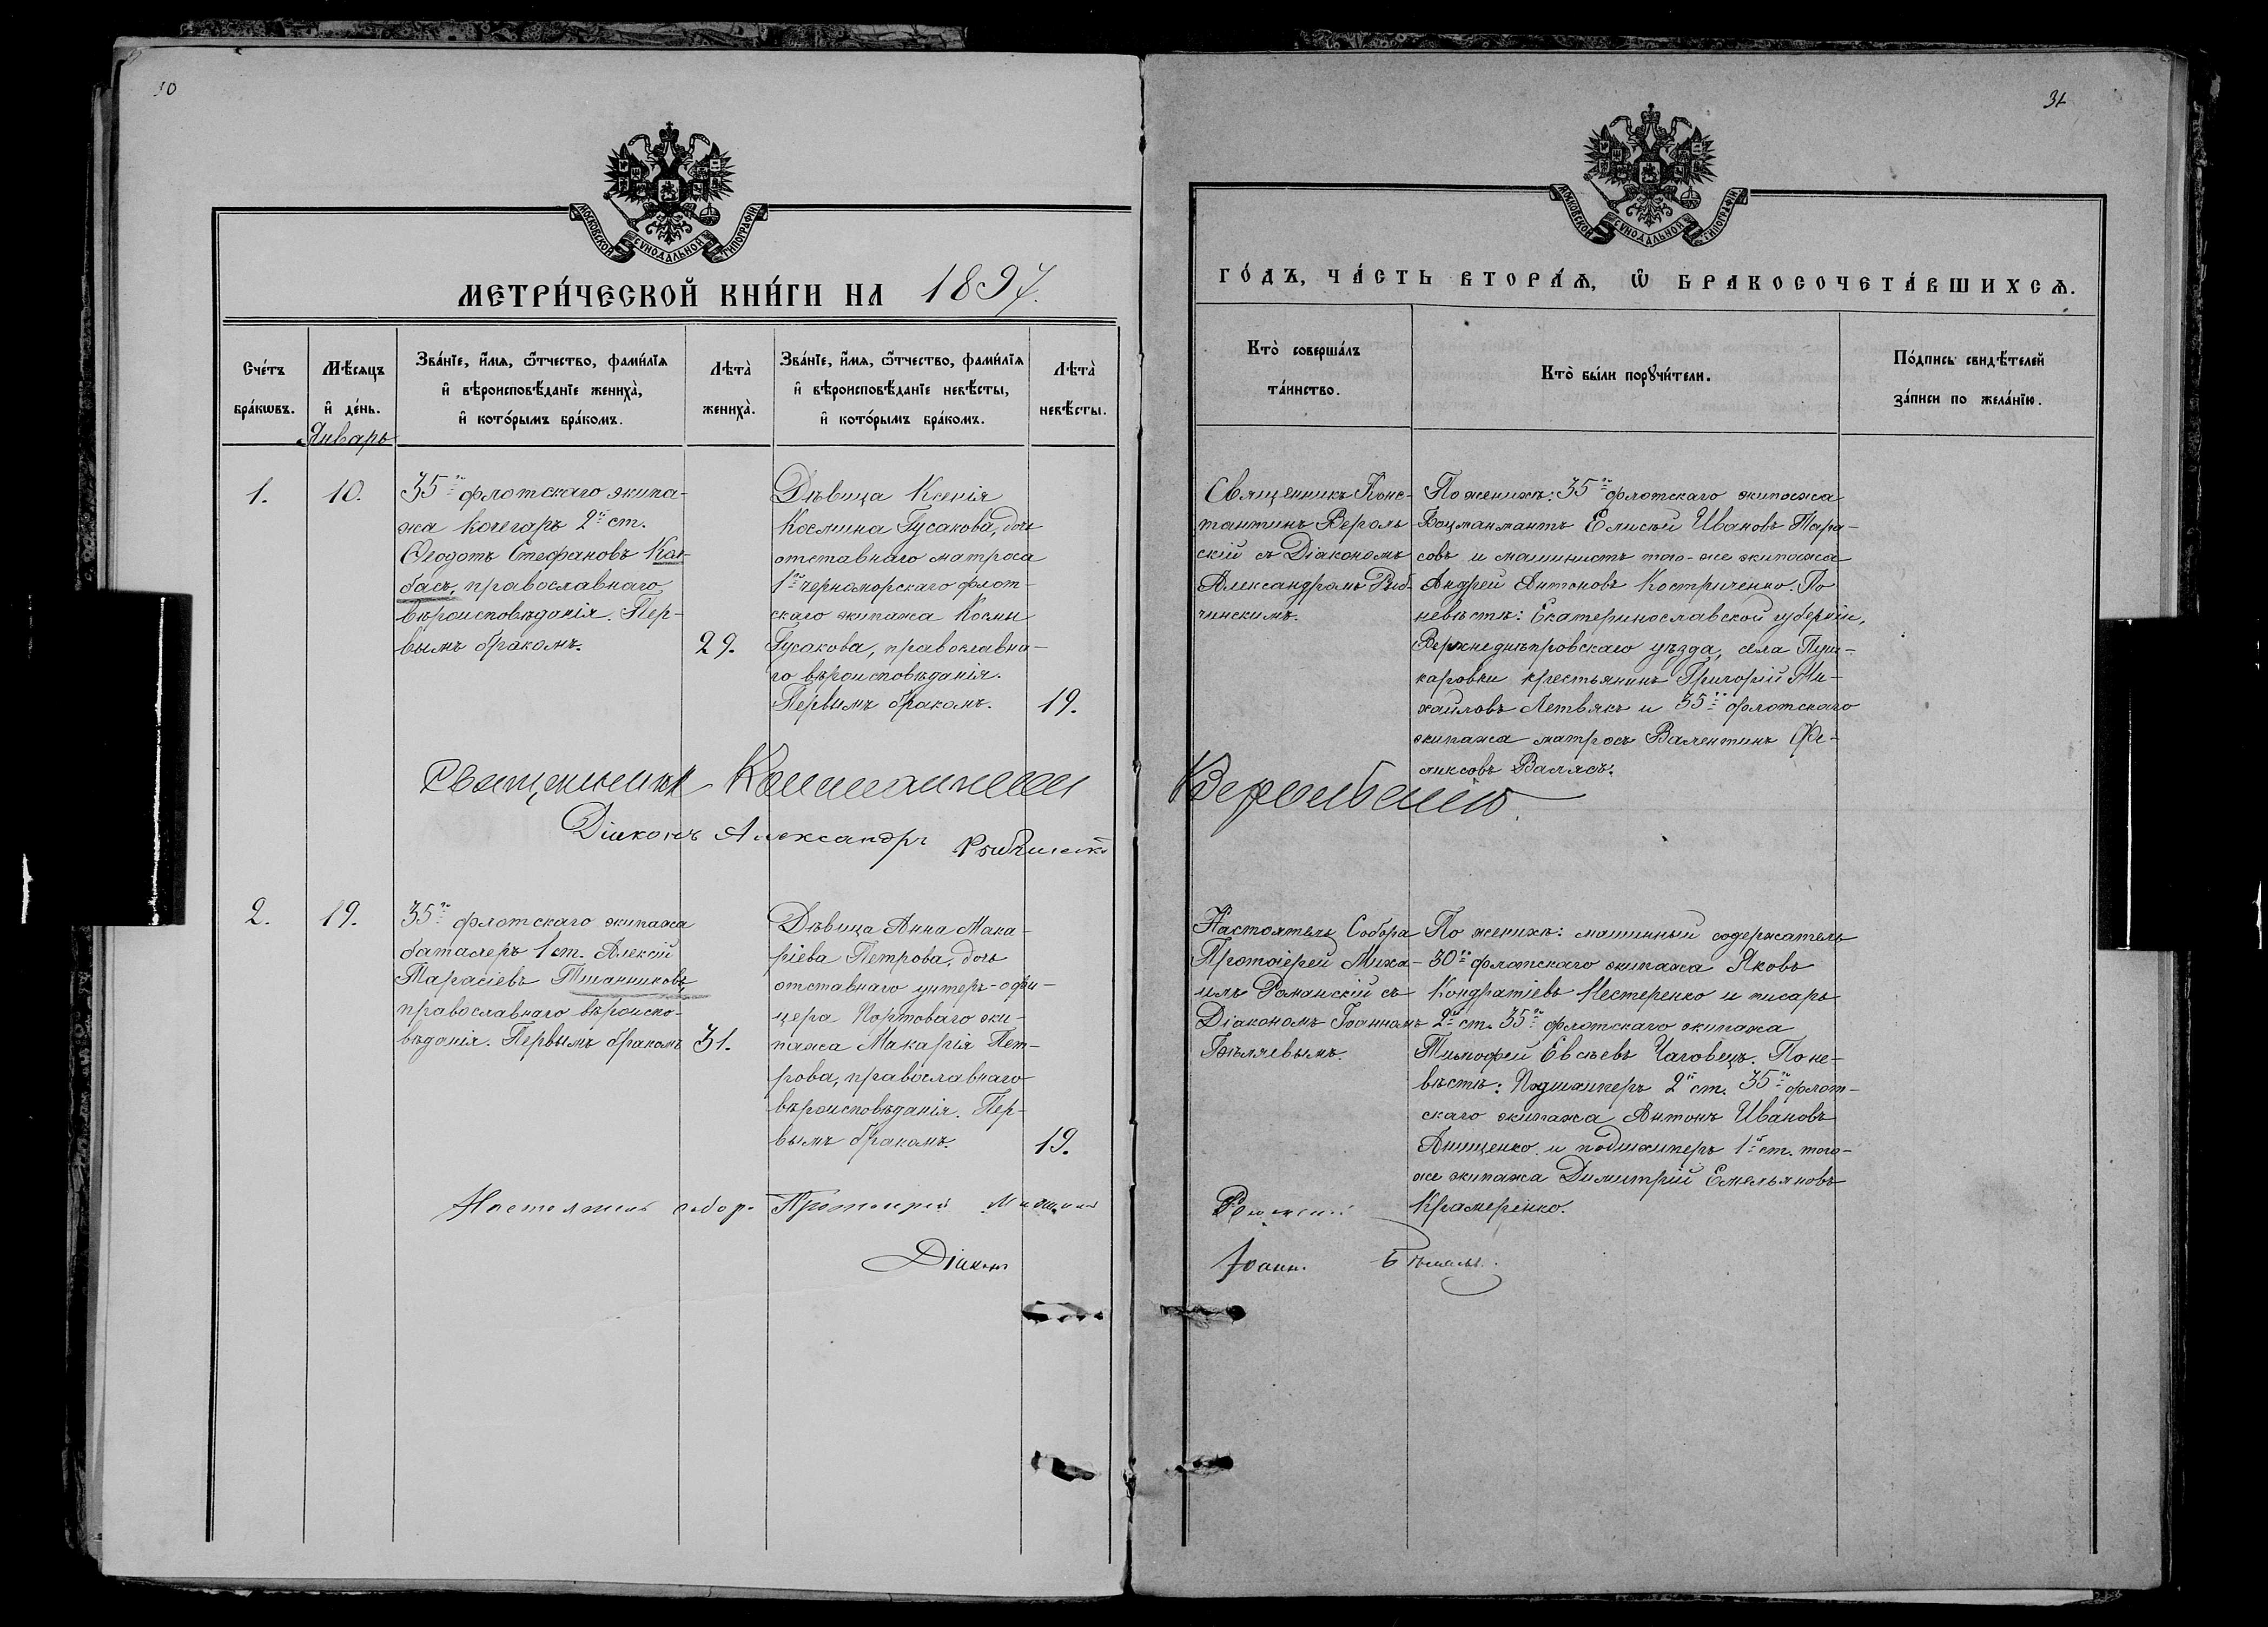 30
МОСКОВСКОЙ СѴНОДАЛЬНОЙ ТИПОГРАФІИ
МЕТРИ́ЧЕСКОЙ КНИ́ГИ НА 1897.
Сче́тъ бра́кѡвъ.
Мѣ́сяцъ и҆ де́нь.
Январь
Зва́нїе, и҆́мѧ, ѻ҆́тчество, фами́лїѧ
и҆ вѣроисповѣ́данїе жениха̀,
и҆ кото́рымъ бра́комъ.
Лѣта̀ жениха̀.
Зва́нїе, и҆́мѧ, ѻ҆́тчество, фами́лїѧ
и҆ вѣроисповѣ́данїе невѣ́сты,
и҆ кото́рымъ бра́комъ.
Лѣта̀ невѣ́сты.
1.
10.
35го флотскаго экипа-
жа кочегаръ 2й ст.
Ѳеодотъ Стефановъ Кол-
басъ, православнаго
вѣроисповѣданія. Пер-
вымъ бракомъ.
29.
Дѣвица Ксенія
Космина Гусакова, дочь
отставнаго матроса
1го черноморскаго флот-
скаго экипажа Космы
Гусакова, православна-
го вѣроисповѣданія.
Первымъ бракомъ.
19.
Священникъ Константинъ
Діаконъ Александръ
2.
19.
35го флотскаго экипажа
баталеръ 1 ст. Алексій
Тарасіевъ Пшанниковъ,
православнаго вѣроиспо-
вѣданія. Первымъ бракомъ
31.
Дѣвица Анна Мака-
ріева Петрова, дочь
отставнаго унтеръ-офи-
цера Портоваго эки-
пажа Макарія Пет-
рова, православнаго
вѣроисповѣданія. Пер-
вымъ бракомъ.
19.
Настоятель собор. Протоіерей Михаилъ
Діаконъ
31
МОСКОВСКОЙ СѴНОДАЛЬНОЙ ТИПОГРАФІИ
ГО́ДЪ, ЧА́СТЬ ВТОРА́Ѧ, Ѡ҆ БРАКОСОЧЕТА́ВШИХСѦ.
Кто̀ соверша́лъ
та́инство.
Кто̀ бы́ли порꙋчи́тели.
По́дпись свидѣ́телей
за́писи по жела́нїю.
Священникъ Конс-
тантинъ Вероль-
скій съ Діакономъ
Александромъ Рыб-
чинскимъ.
По женихѣ: 35го флотскаго экипажа
Боцманматъ Елисѣй Ивановъ Тара-
совъ и машинистъ того-же экипажа
Андрей Антоновъ Костриченко. По
невѣстѣ: Екатеринославской губерніи,
Верхнеднѣпровскаго уѣзда, села Пуш-
каровки крестьянинъ Григорій Ми-
хайловъ Летвякъ и 35го флотскаго
экипажа матросъ Валентинъ Фе-
ликсовъ Валясъ.
Настоятель Собора
Протоіерей Миха-
илъ Романскій съ
Діакономъ Іоанномъ
Бѣляевымъ.
По женихѣ: машинный содержатель
30го флотскаго экипажа Яковъ
Кондратіевъ Нестеренко и писарь
2й ст. 35го флотскаго экипажа
Тимофей Евсѣевъ Чаговецъ. По не-
вѣстѣ: Подшхиперъ 2й ст. 35го флот-
скаго экипажа Антонъ Ивановъ
Анищенко и подшхиперъ 1й ст. того-
же экипажа Димитрій Емельяновъ
Крамеренко.
Іоанн.